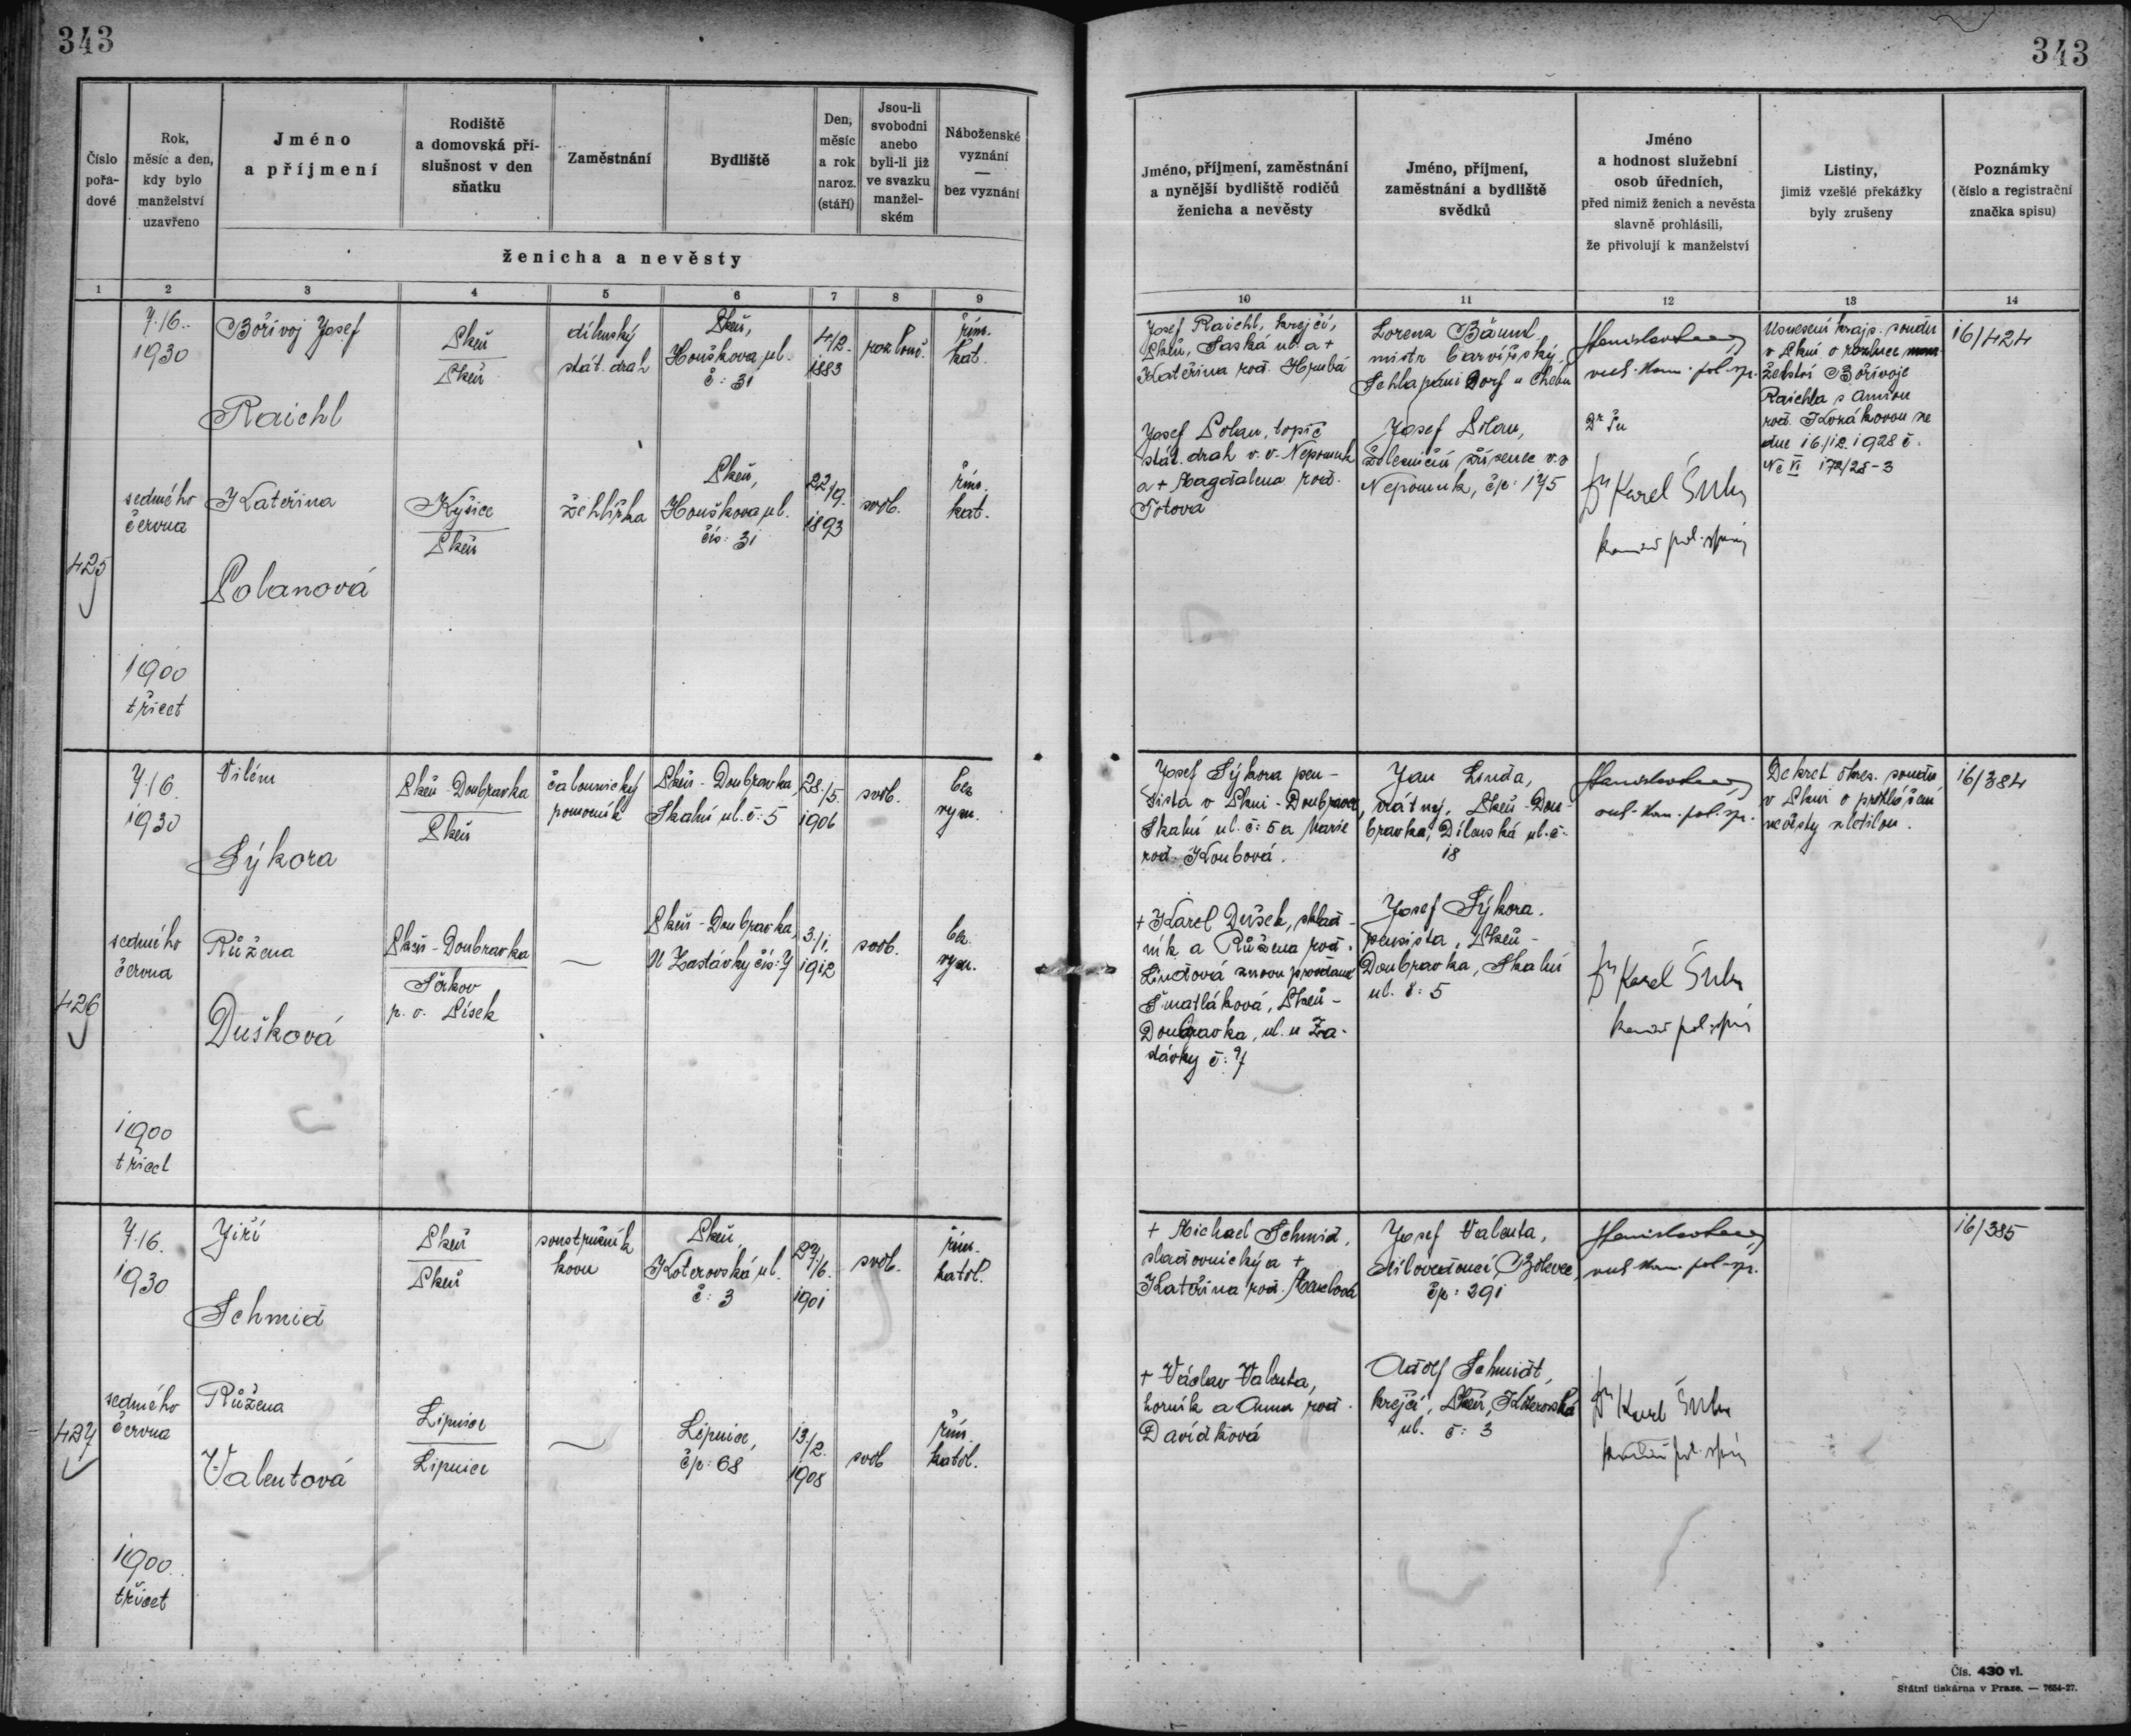 343
343
Číslo
pořa-
dové
Rok,
měsíc a den,
kdy bylo
manželství
uzavřeno
Jméno
a příjmení
Rodiště
a domovská pří-
slušnost v den
sňatku
Zaměstnání
Bydliště
Den,
měsíc
a rok
naroz.
(stáří)
Jsou-li
svobodni
anebo
byli-li již
ve svazku
manžel-
ském
Náboženské
vyznání
—
bez vyznání
ženicha a nevěsty
1 2 3 4 5 6 7 8 9
Jméno, příjmení, zaměstnání
a nynější bydliště rodičů
ženicha a nevěsty
Jméno, příjmení,
zaměstnání a bydliště
svědků
Jméno
a hodnost služební
osob úředních,
před nimiž ženich a nevěsta
slavně prohlásili,
že přivolují k manželství
Listiny,
jimiž vzešlé překážky
byly zrušeny
Poznámky
(číslo a registrační
značka spisu)
10 11 12 13 14
425
7./6.
1930
sedmého
června
1900
třicet
Bořivoj Josef
Raichl
Plzeň
Plzeň
dílenský
stát. drah
Plzeň,
Houškova ul.
č: 31
4/2.
1883
rozlouč.
řím.
kat.
Kateřina
Polanová
Kyšice
Plzeň
žehlířka
Plzeň,
Houškova ul.
čís: 31
22/9.
1893
svob.
řím.
kat.
Josef Raichl, krejčí,
Plzeň, Saská ul. a +
Kateřina roz. Hrubá
Josef Polan, topič
stát. drah v. v. Nepomuk
a + Magdalena roz.
Totova
Lorenz Bäuml,
mistr barvířský,
Schlapáni Dorf u Chebu
Josef Polan,
železniční zřízenec v.v
Nepomuk, čp: 175
vrch. kom. pol. spr.
Dr Šu
Dr Karel Šulc
komisař pol. správy
Usnesení krajs. soudu
v Plzni o rozluce man
želství Bořivoje
Raichla s Annou
roz. Korákovou ze
dne 16./12. 1928 č.
Nc VI 172/28-3
16/424
426
7./6.
1930
sedmého
června
1900
třicet
Vilém
Sýkora
Plzeň-Doubravka
Plzeň
čalounický
pomocník
Plzeň-Doubravka
Skalní ul. č: 5
28./5.
1906
svob.
bez
vyzn.
Růžena
Dušková
Plzeň-Doubravka
p. o. Písek
Plzeň-Doubravka,
U Zastávky čís: 7
3./1.
1912
svob.
bez
vyzn.
Josef Sýkora pen-
sista v Plzni-Doubravce,
Skalní ul. č: 5 a Marie
roz. Koubová.
+ Karel Dušek, sklad-
ník a Růžena roz.
Lindová znovu provdaná
Šmatláková, Plzeň-
Doubravka, ul. u Za-
stávky č: 7
Jan Linda,
vrátný, Plzeň-Dou-
bravka, Dílenská ul. č.
18
Josef Sýkora.
pensista, Plzeň-
Doubravka, Skalní
ul. č: 5
vrch. kom. pol. spr.
Dr Karel Šulc
komisař pol. správy
Dekret okres. soudu
v Plzni o prohlášení
nevěsty zletilou.
16/384
427
7./6.
1930
sedmého
června
1900.
třicet
Jiří
Schmid
Plzeň
Plzeň
soustružník
kovu
Plzeň,
Koterovská ul.
č: 3
27/6.
1901
svob.
řím.
katol.
Růžena
Valentová
Lipnice
Lipnice
Lipnice,
čp: 68
13./2.
1908
svob
řím.
katol.
+ Michael Schmid,
sladovnický a +
Kateřina roz.
+ Václav Valenta,
horník a Anna roz.
Davídková
Josef Valenta,
dílovedoucí, Bolevec,
čp: 291
Adolf Schmidt,
krejčí, Plzeň, Koterovská
ul. č: 3
vrch. kom. pol. spr.
Dr Karel Šulc
komisař pol. správy
16/385
Čís. 430 vl.
Státní tiskárna v Praze. — 7654-27.